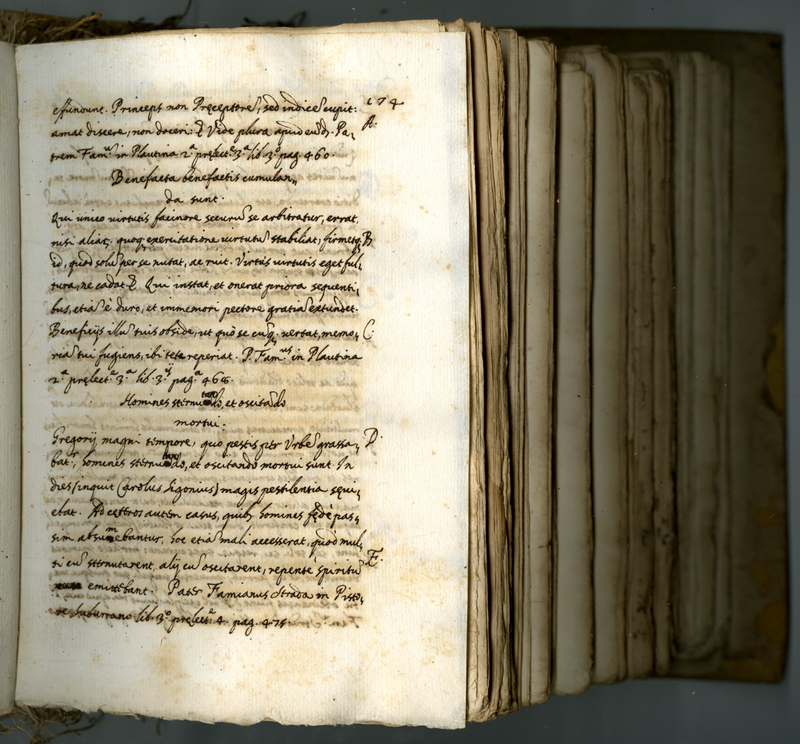 effundunt. Princeps non Pręceptorē, sed indicē cupit: 174
amat discere, non doceri: &. Vide plura apud eund. Pa, A.
trem Fam.ᵘ in Plautina 2.ª pręlect.ᵉ 3.ª lib. 3.º pag. 460.
Benefacta benefactis cumulan,,
da sunt.
Qui unico virtutis facinore securū se arbitratur, errat,
nisi aliaq; quoq; exercitatione virtutū stabiliat, firmetq; B
id, quod solū per se nutat, ac ruit. Virtus virtutis eget ful,
tura, ne cadat &. Qui instat, et onerat priora sequenti,
bus, etiā è duro, et immemori pectore gratiā extundet.
Beneficijs illū tuis obside, ut quò se cuq; vertat, memo, C.
riā tui fugiens, ibi te te reperiat. P. Fam.ᵘˢ in Plautina
2.ª pręlect.ª 3.ª lib. 3.ⁱʲ pag.ª 468.
Homines sternutādo, et oscitādo
mortui.
Gregorij magni tempore, quo pestis per Urbē grassa, D.
bat.ʳ, homines sternutādo, et oscitando mortui sunt. In
dies (inquit Carolus Sigonius) magis pestilentia sęui,
ebat. Ad cęteros autem casus, quib; homines fędè pas,
sim absumebantur, hoc etiā mali accesserat, quòd mul,
ti cū sternutarent, alij cū oscitarent, repente spiritū E.
emittebant. Pater Famianus Strada in Pisto,
re Suburrano lib. 3.º pręlect.ᵉ 4. pag. 475.